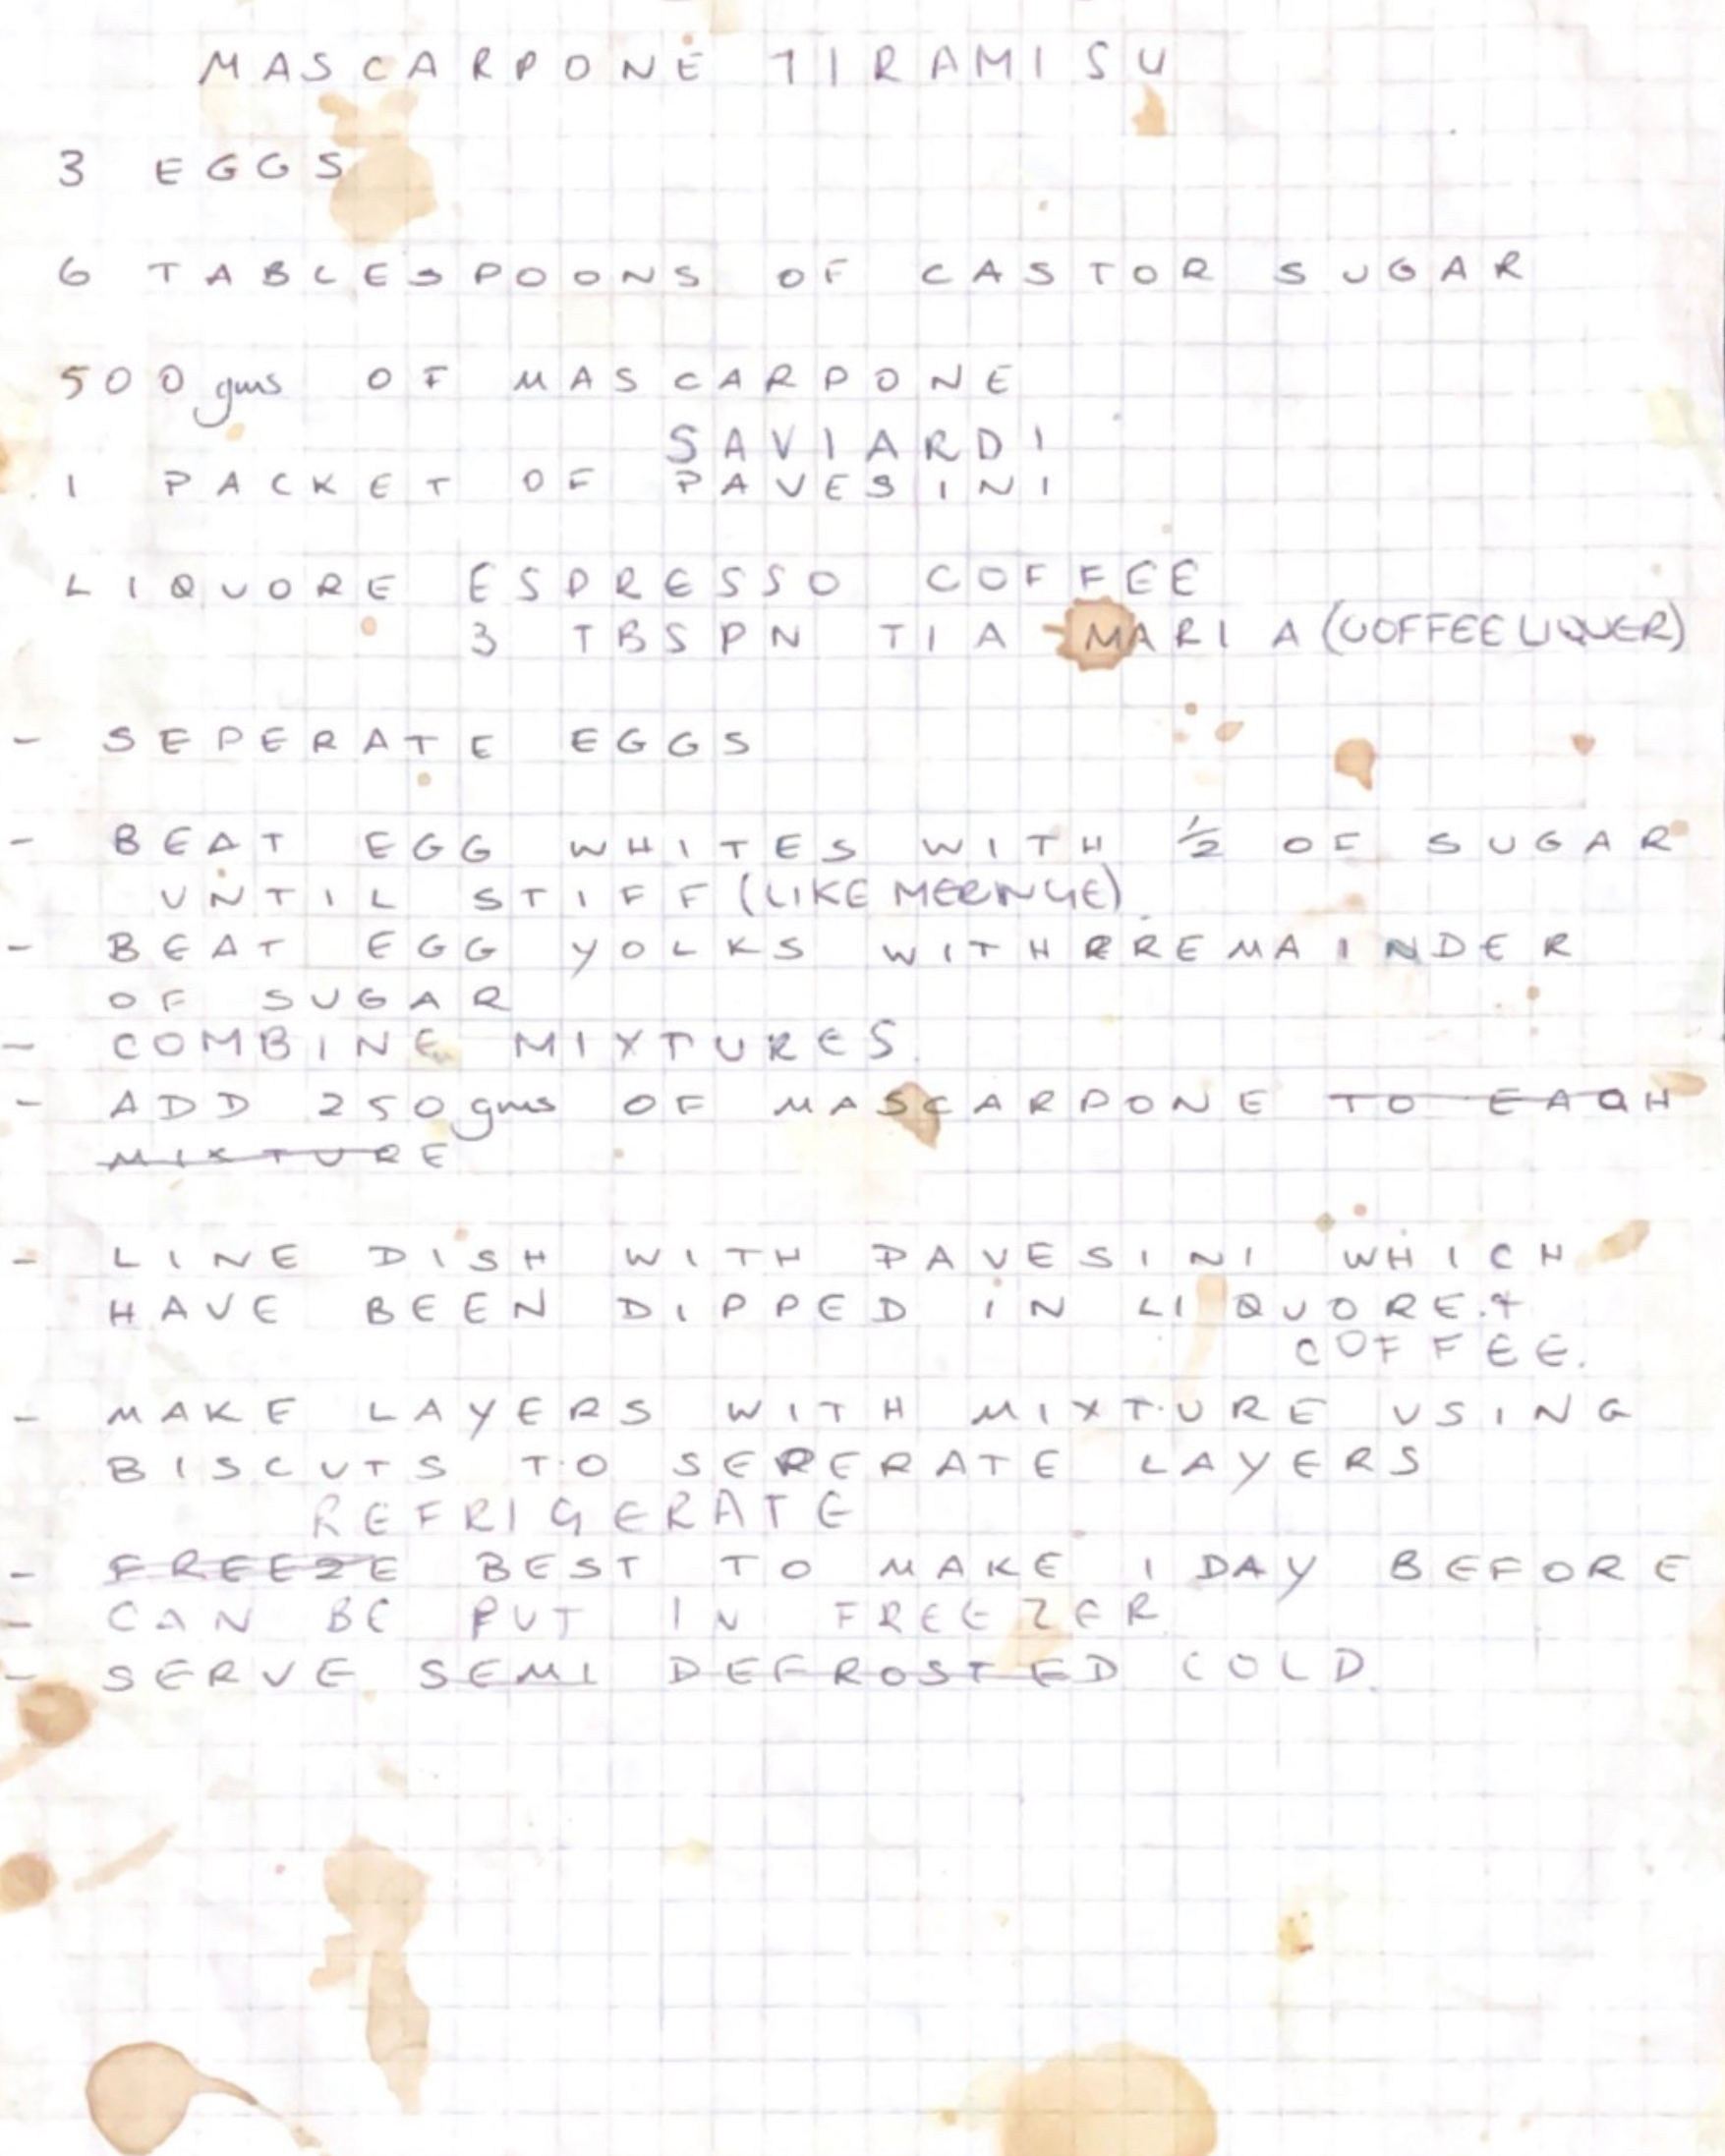 MASCARPONE TIRAMISU
3 EGGS
6 TABLESPOONS OF CASTOR SUGAR
500 gms OF MASCARPONE
SAVIARDI
1 PACKET OF PAVESINI
LIQUORE ESPRESSO COFFEE
3 TBSPN TIA MARIA (COFFEE LIQUER)
- SEPERATE EGGS
- BEAT EGG WHITES WITH 1/2 OF SUGAR
UNTIL STIFF (LIKE MERNGE)
- BEAT EGG YOLKS WITH REMAINDER
OF SUGAR
- COMBINE MIXTURES.
- ADD 250 gms OF MASCARPONE TO EACH
MIXTURE
- LINE DISH WITH PAVESINI WHICH
HAVE BEEN DIPPED IN LIQUORE. +
COFFEE.
- MAKE LAYERS WITH MIXTURE USING
BISCUTS TO SEPERATE LAYERS
REFRIGERATE
- FREEZE BEST TO MAKE 1 DAY BEFORE
- CAN BE PUT IN FREEZER
- SERVE SEMI DEFROSTED COLD.